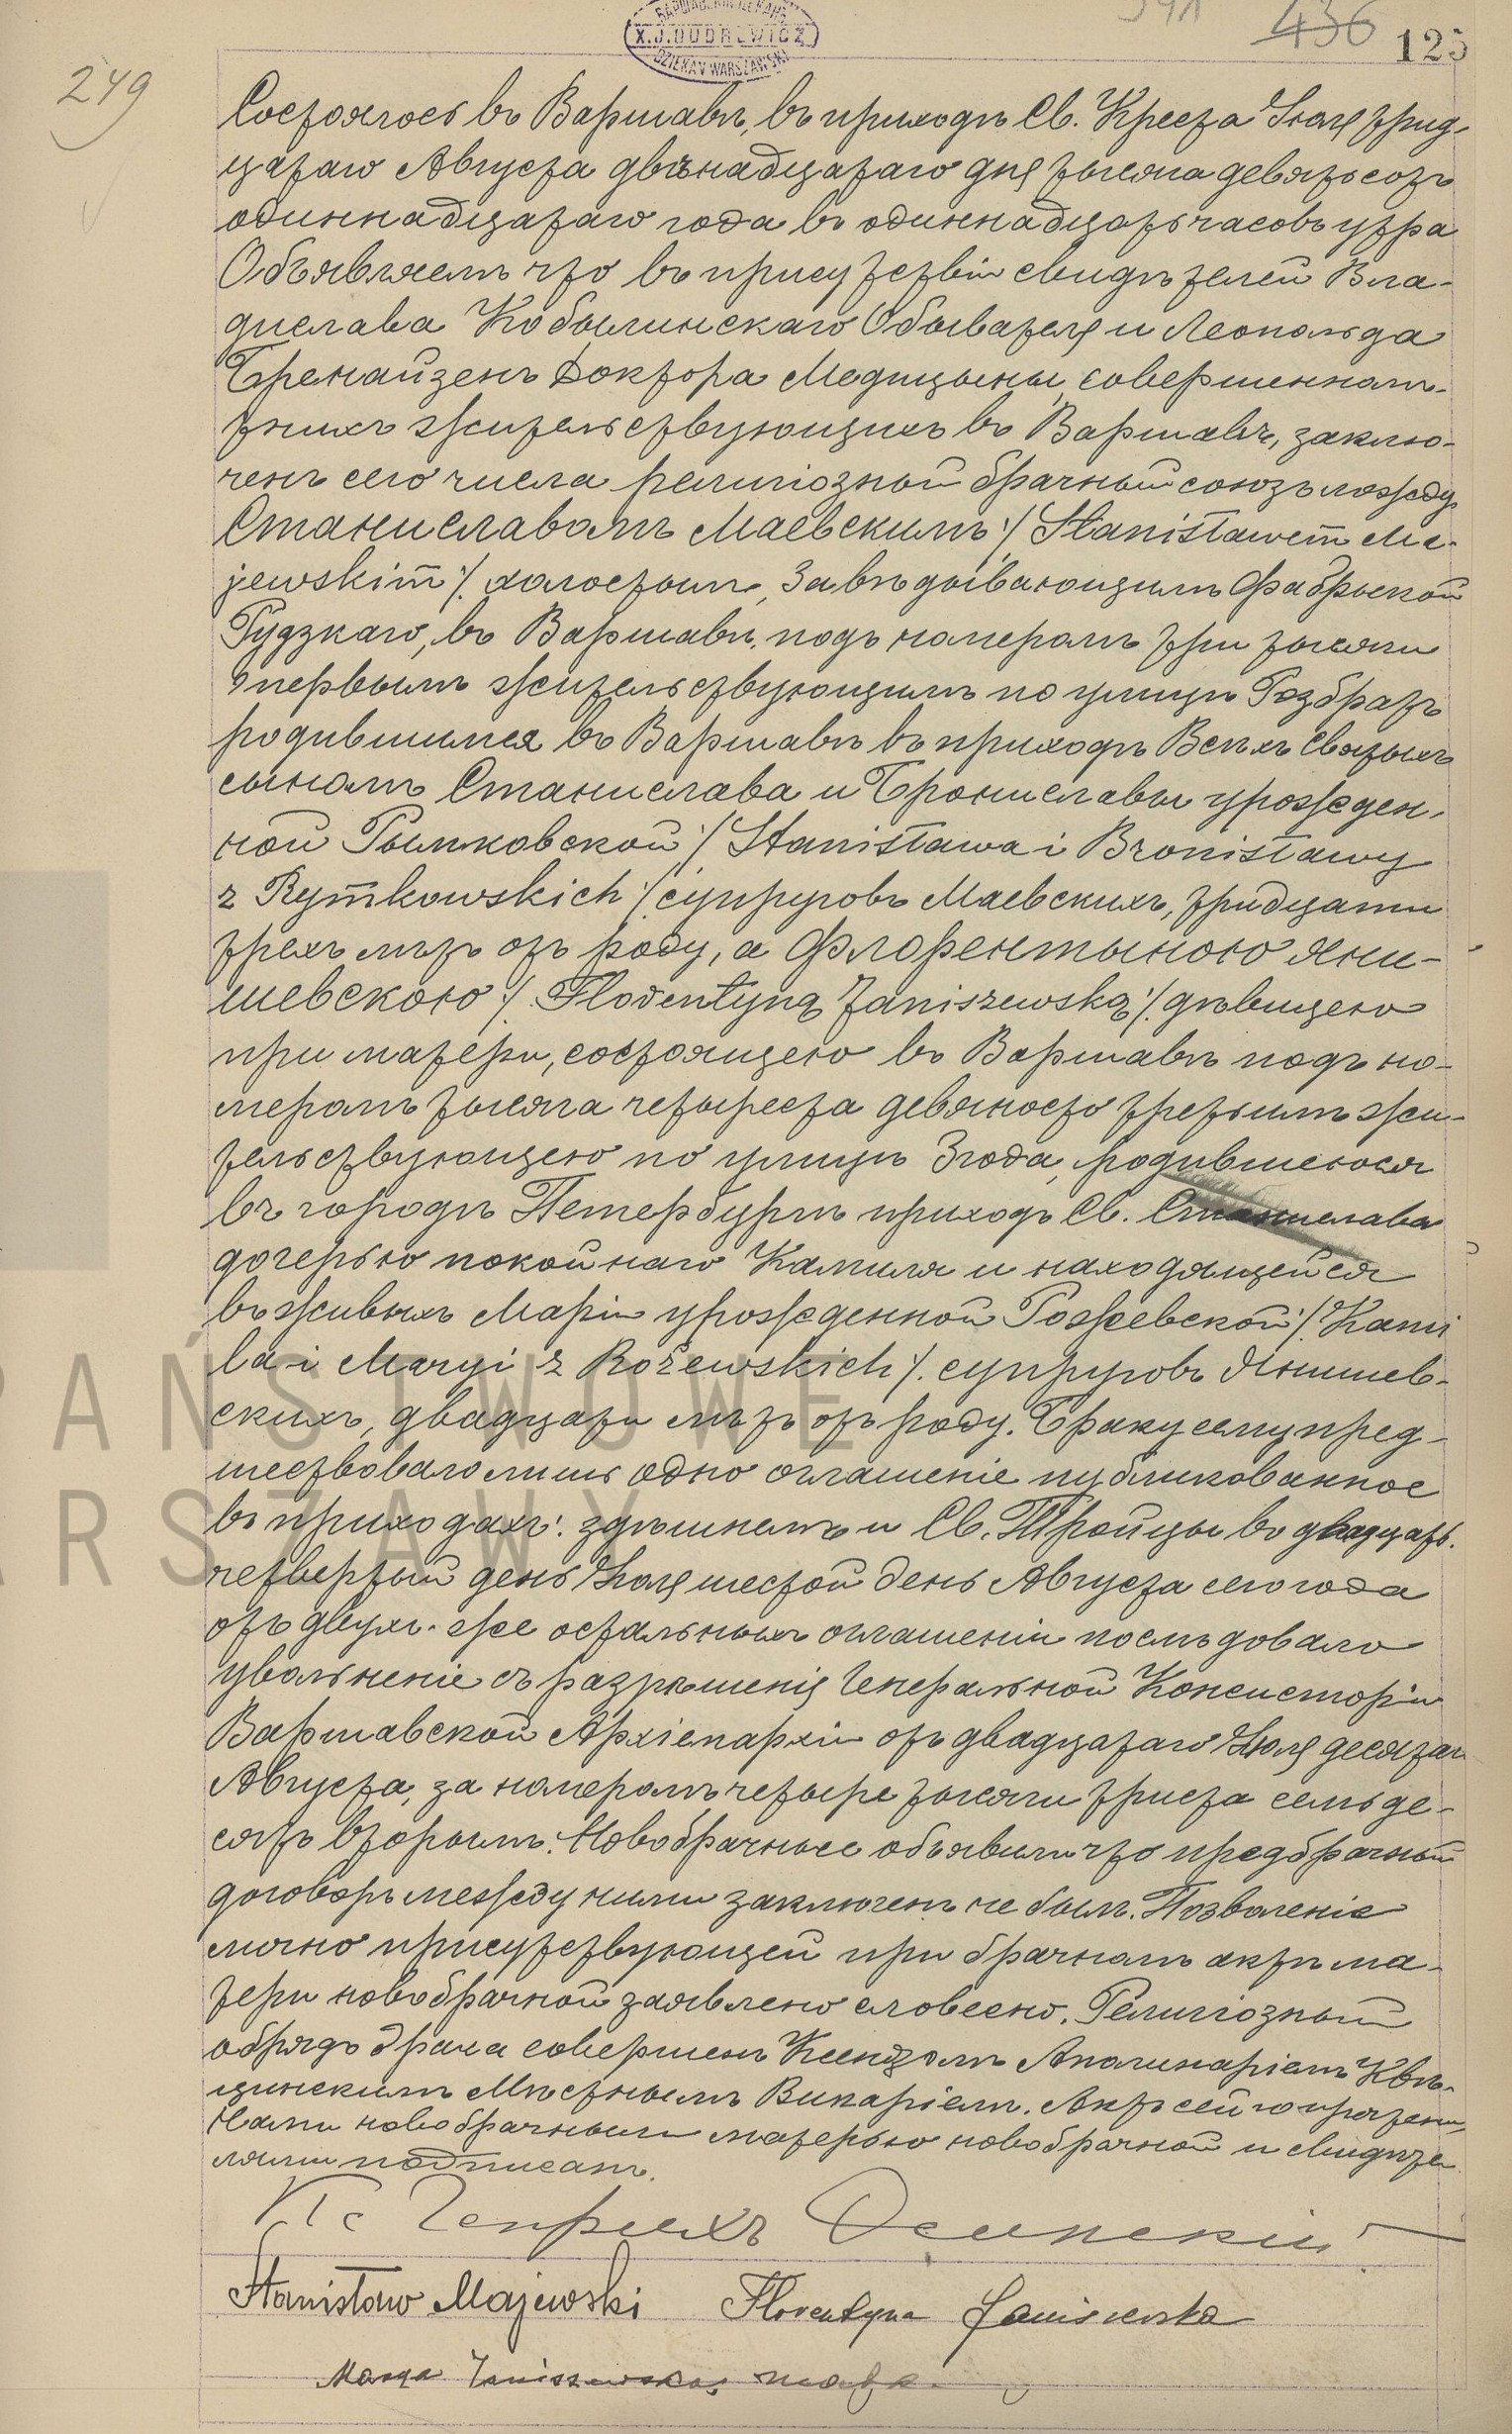 ВАРШАВСКІЙ ДЕКАНЪ
X.J.DUDREWICZ
DZIEKAN WARSZAWSKI
436
125
249
Состоялось въ Варшавѣ, въ приходѣ Св. Креста Іюля трид-
цатаго Августа двѣнадцатаго дня тысяча девятьсотъ
одиннадцатаго года въ одиннадцать часовъ утра
Объявляемъ что въ присутствіи свидѣтелей Вла-
дислава Кобылинскаго Обывателя и Леопольда
Бренайзенъ Доктора Медицыны, совершеннолѣ-
тнихъ жительствующихъ въ Варшавѣ, заклю-
ченъ сего числа религіозный брачный союзъ между
Станиславомъ Маевскимъ /Stanisławem Ma-
jewskim/ холостымъ, Завѣдывающимъ Фабрыкой
Рудзкаго, въ Варшавѣ подъ номеромъ три тысячи
первымъ жительствующимъ по улицѣ Розбратъ
родившимся въ Варшавѣ въ приходѣ Всѣхъ Святыхъ
сыномъ Станислава и Брониславы урожден-
ной Рымковской /Stanisława i Bronisławy
z Rymkowskich/ супруговъ Маевскихъ, тридцати
трехъ лѣтъ отъ роду, а Флорентыною Яни-
шевскою /Florentyną Janiszewską/ дѣвицею
при матери, состоящею въ Варшавѣ подъ но-
меромъ тысяча четыреста девяносто третьимъ жи-
тельствующею по улицѣ Згода, родившеюся
въ городѣ Петербургѣ приходѣ Св. Станислава
дочерью покойнаго Камиля и находящейся
въ живыхъ Маріи урожденной Рожевской /Kami
la i Maryi z Rożewskich/ супруговъ Янишев-
скихъ, двадцати лѣтъ отъ роду. Браку сему пред-
шествовало лишь одно оглашеніе публикованное
въ приходахъ: здѣшнемъ и Св. Тройцы въ двадцать
четвертый день Іюля шестой день Августа сего года
отъ двухъ же остальныхъ оглашеній послѣдовало
увольненіе съ разрѣшенія Генеральной Консисторіи
Варшавской Архіепархіи отъ двадцатаго Іюля десятаго
Августа, за номеромъ четыре тысячи триста семьде-
сятъ вторымъ. Новобрачные объявили что предбрачный
договоръ между ними заключенъ не былъ. Позволеніе
лично присутствующей при брачномъ актѣ ма-
тери новобрачной заявлено словесно. Религіозный
обрядъ брака совершенъ Ксендзомъ Аполинаріемъ Квѣ-
цинскимъ Мѣстнымъ Викаріемъ. Актъ сей по прочтеніи
Нами новобрачными матерью новобрачной и свидѣте
лями подписанъ.
Кс Генрихъ Осинскій
Stanisław Majewski Florentyna Janiszewska
Marya Janiszewska, matka
PAŃSTWOWE
ARSZAWY